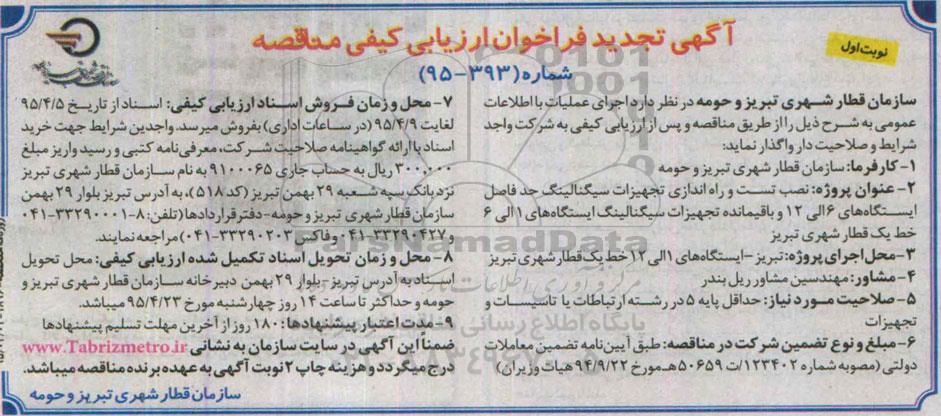 آگهی تجدید فراخوان ارزیابی کیفی مناقصه
شماره (۳۹۳-۹۵)
نوبت اول
سازمان قطار شهری تبریز و حومه در نظر دارد اجرای عملیات با اطلاعات
عمومی به شرح ذیل را از طریق مناقصه و پس از ارزیابی کیفی به شرکت واجد
شرایط و صلاحیت دار واگذار نماید:
۱- کارفرما: سازمان قطار شهری تبریز و حومه
۲- عنوان پروژه: نصب تست و راه اندازی تجهیزات سیگنالینگ حد فاصل
ایستگاه‌های ۶ الی ۱۲ و باقیمانده تجهیزات سیگنالینگ ایستگاه‌های ۱ الی ۶
خط یک قطار شهری تبریز
۳- محل اجرای پروژه: تبریز - ایستگاه‌های ۱ الی ۱۲ خط یک قطار شهری تبریز
۴- مشاور: مهندسین مشاور ریل بندر
۵- صلاحیت مورد نیاز: حداقل پایه ۵ در رشته ارتباطات یا تاسیسات و
تجهیزات
۶- مبلغ و نوع تضمین شرکت در مناقصه: طبق آیین‌نامه تضمین معاملات
دولتی (مصوبه شماره ۱۲۳۴۰۲/ت ۵۰۶۵۹ هـ مورخ ۹۴/۹/۲۲ هیات وزیران)
۷- محل و زمان فروش اسناد ارزیابی کیفی: اسناد از تاریخ ۹۵/۴/۵
لغایت ۹۵/۴/۹ (در ساعات اداری) بفروش میرسد. واجدین شرایط جهت خرید
اسناد با ارائه گواهینامه صلاحیت شرکت، معرفی‌نامه کتبی و رسید واریز مبلغ
۳۰۰,۰۰۰ ریال به حساب جاری ۹۱۰۰۰۶۵ به نام سازمان قطار شهری تبریز
نزد بانک سپه شعبه ۲۹ بهمن تبریز (کد ۵۱۸)، به آدرس تبریز بلوار ۲۹ بهمن
سازمان قطار شهری تبریز و حومه - دفتر قراردادها (تلفن: ۸-۳۳۲۹۰۰۰۱-۰۴۱
و ۳۳۲۹۰۴۲۷-۰۴۱ و فاکس ۳۳۲۹۰۲۰۳-۰۴۱) مراجعه نمایند.
۸- محل و زمان تحویل اسناد تکمیل شده ارزیابی کیفی: محل تحویل
اسناد به آدرس تبریز- بلوار ۲۹ بهمن دبیرخانه سازمان قطار شهری تبریز و
حومه و حداکثر تا ساعت ۱۴ روز چهارشنبه مورخ ۹۵/۴/۲۳ میباشد.
۹- مدت اعتبار پیشنهادها: ۱۸۰ روز از آخرین مهلت تسلیم پیشنهادها
ضمناً این آگهی در سایت سازمان به نشانی www.Tabrizmetro.ir
درج میگردد و هزینه چاپ ۲ نوبت آگهی به عهده برنده مناقصه میباشد.
سازمان قطار شهری تبریز و حومه
ParsNamadData
پایگاه اطلاع رسانی